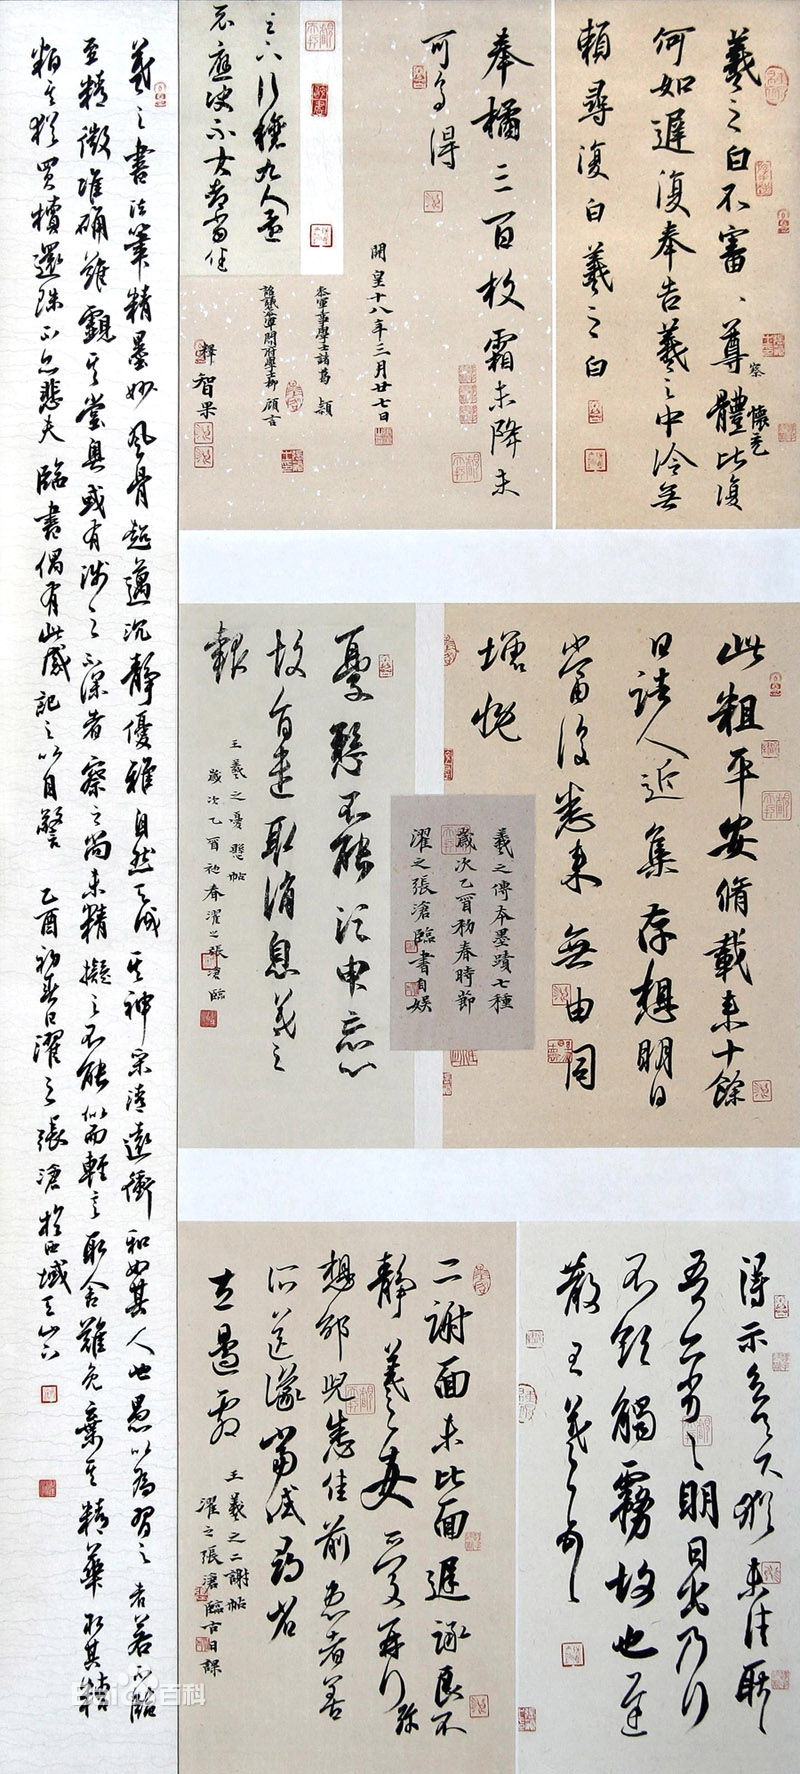 羲之白不審尊體比復
察
懷充
何如遲復奉告羲之中冷無
賴尋復白羲之白
奉橘三百枚霜未降未
可多得
開皇十八年三月廿七日
參軍事學士諸葛穎
諮議參軍開府學士柳顧言
釋智果
不應決不大都當任
此粗平安脩載來十餘
日諸人近集存想明日
當復悉來無由同
增慨
羲之傳本墨蹟七種
歲次乙酉初春時節
濯之張滄臨書自娛
憂懸不能須臾忘心
故旨遣取消息羲之
報
王羲之憂懸帖
歲次乙酉初春濯之張滄臨
得示知足下猶未佳耿耿
吾亦劣劣明日出乃行
不欲觸霧故也遲
散王羲之頓首
二謝面未比面遲詠良不
靜羲之女愛再拜
想邰兒悉佳前患者善
所送議當試尋省
左邊劇
王羲之二謝帖
濯之張滄臨古日課
羲之書法筆精墨妙風骨超邁沉靜優雅自然天成其神采清遠沖和如其人也愚以為習之者若不臨
至精微准確難窺其堂奧或有涉之不深者察之尚未精擬之不能似而輕言取舍難免棄其精華取其糟
粕其猶買櫝還珠不亦悲夫臨書偶有此感記之以自警乙酉初春日濯之張滄於西域天山下
Baidu百科